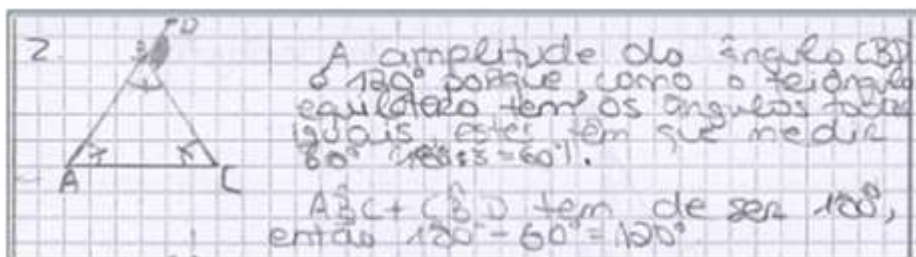 2.
D
B
A C
A amplitude do ângulo CBD
é 120° porque como o triângulo
equilátero tem os ângulos todos
iguais, estes têm que medir
60° (180:3=60°).
AB̂C + CB̂D tem de ser 180°,
então 180° - 60° = 120°